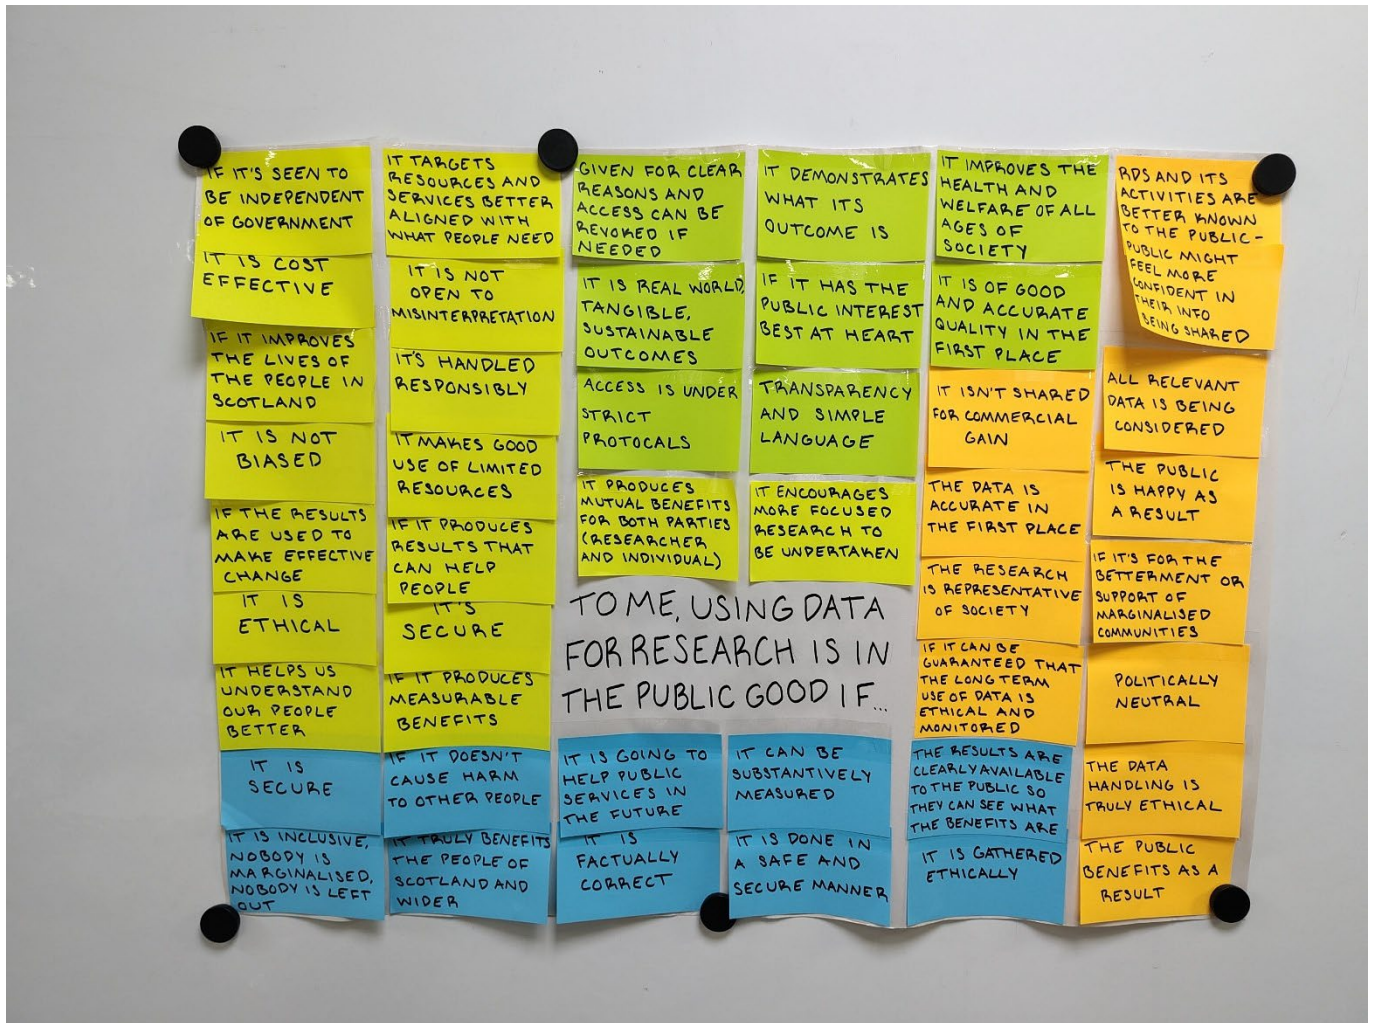 IF IT'S SEEN TO
BE INDEPENDENT
OF GOVERNMENT
IT IS COST
EFFECTIVE
IF IT IMPROVES
THE LIVES OF
THE PEOPLE IN
SCOTLAND
IT IS NOT
BIASED
IF THE RESULTS
ARE USED TO
MAKE EFFECTIVE
CHANGE
IT IS
ETHICAL
IT HELPS US
UNDERSTAND
OUR PEOPLE
BETTER
IT IS
SECURE
IT IS INCLUSIVE,
NOBODY IS
MARGINALISED,
NOBODY IS LEFT
OUT
IT TARGETS
RESOURCES AND
SERVICES BETTER
ALIGNED WITH
WHAT PEOPLE NEED
IT IS NOT
OPEN TO
MISINTERPRETATION
IT'S HANDLED
RESPONSIBLY
IT MAKES GOOD
USE OF LIMITED
RESOURCES
IF IT PRODUCES
RESULTS THAT
CAN HELP
PEOPLE
IT'S
SECURE
IF IT PRODUCES
MEASURABLE
BENEFITS
IF IT DOESN'T
CAUSE HARM
TO OTHER PEOPLE
IT TRULY BENEFITS
THE PEOPLE OF
SCOTLAND AND
WIDER
GIVEN FOR CLEAR
REASONS AND
ACCESS CAN BE
REVOKED IF
NEEDED
IT IS REAL WORLD,
TANGIBLE,
SUSTAINABLE
OUTCOMES
ACCESS IS UNDER
STRICT
PROTOCALS
IT PRODUCES
MUTUAL BENEFITS
FOR BOTH PARTIES
(RESEARCHER
AND INDIVIDUAL)
IT DEMONSTRATES
WHAT ITS
OUTCOME IS
IF IT HAS THE
PUBLIC INTEREST
BEST AT HEART
TRANSPARENCY
AND SIMPLE
LANGUAGE
IT ENCOURAGES
MORE FOCUSED
RESEARCH TO
BE UNDERTAKEN
TO ME, USING DATA
FOR RESEARCH IS IN
THE PUBLIC GOOD IF...
IT IS GOING TO
HELP PUBLIC
SERVICES IN
THE FUTURE
IT IS
FACTUALLY
CORRECT
IT CAN BE
SUBSTANTIVELY
MEASURED
IT IS DONE IN
A SAFE AND
SECURE MANNER
IT IMPROVES THE
HEALTH AND
WELFARE OF ALL
AGES OF
SOCIETY
IT IS OF GOOD
AND ACCURATE
QUALITY IN THE
FIRST PLACE
IT ISN'T SHARED
FOR COMMERCIAL
GAIN
THE DATA IS
ACCURATE IN
THE FIRST PLACE
THE RESEARCH
IS REPRESENTATIVE
OF SOCIETY
IF IT CAN BE
GUARANTEED THAT
THE LONG TERM
USE OF DATA IS
ETHICAL AND
MONITORED
THE RESULTS ARE
CLEARLY AVAILABLE
TO THE PUBLIC SO
THEY CAN SEE WHAT
THE BENEFITS ARE
IT IS GATHERED
ETHICALLY
RDS AND ITS
ACTIVITIES ARE
BETTER KNOWN
TO THE PUBLIC -
PUBLIC MIGHT
FEEL MORE
CONFIDENT IN
THEIR INFO
BEING SHARED
ALL RELEVANT
DATA IS BEING
CONSIDERED
THE PUBLIC
IS HAPPY AS
A RESULT
IF IT'S FOR THE
BETTERMENT OR
SUPPORT OF
MARGINALISED
COMMUNITIES
POLITICALLY
NEUTRAL
THE DATA
HANDLING IS
TRULY ETHICAL
THE PUBLIC
BENEFITS AS A
RESULT